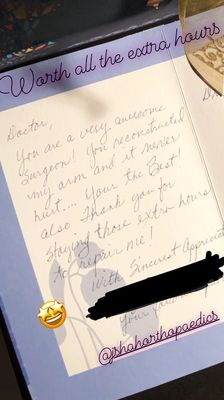 Worth all the extra hours
Doctor,
You are a very awesome
Surgeon! You reconstructed
my arm and it never
hurt.... Your the Best!
also Thank you for
Staying those extra-hours
to repair me!
With Sincerest Appreciat
Your
@jshahorthopaedics